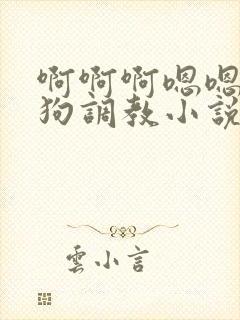 啊啊啊嗯嗯
狗調教小說
雲小言